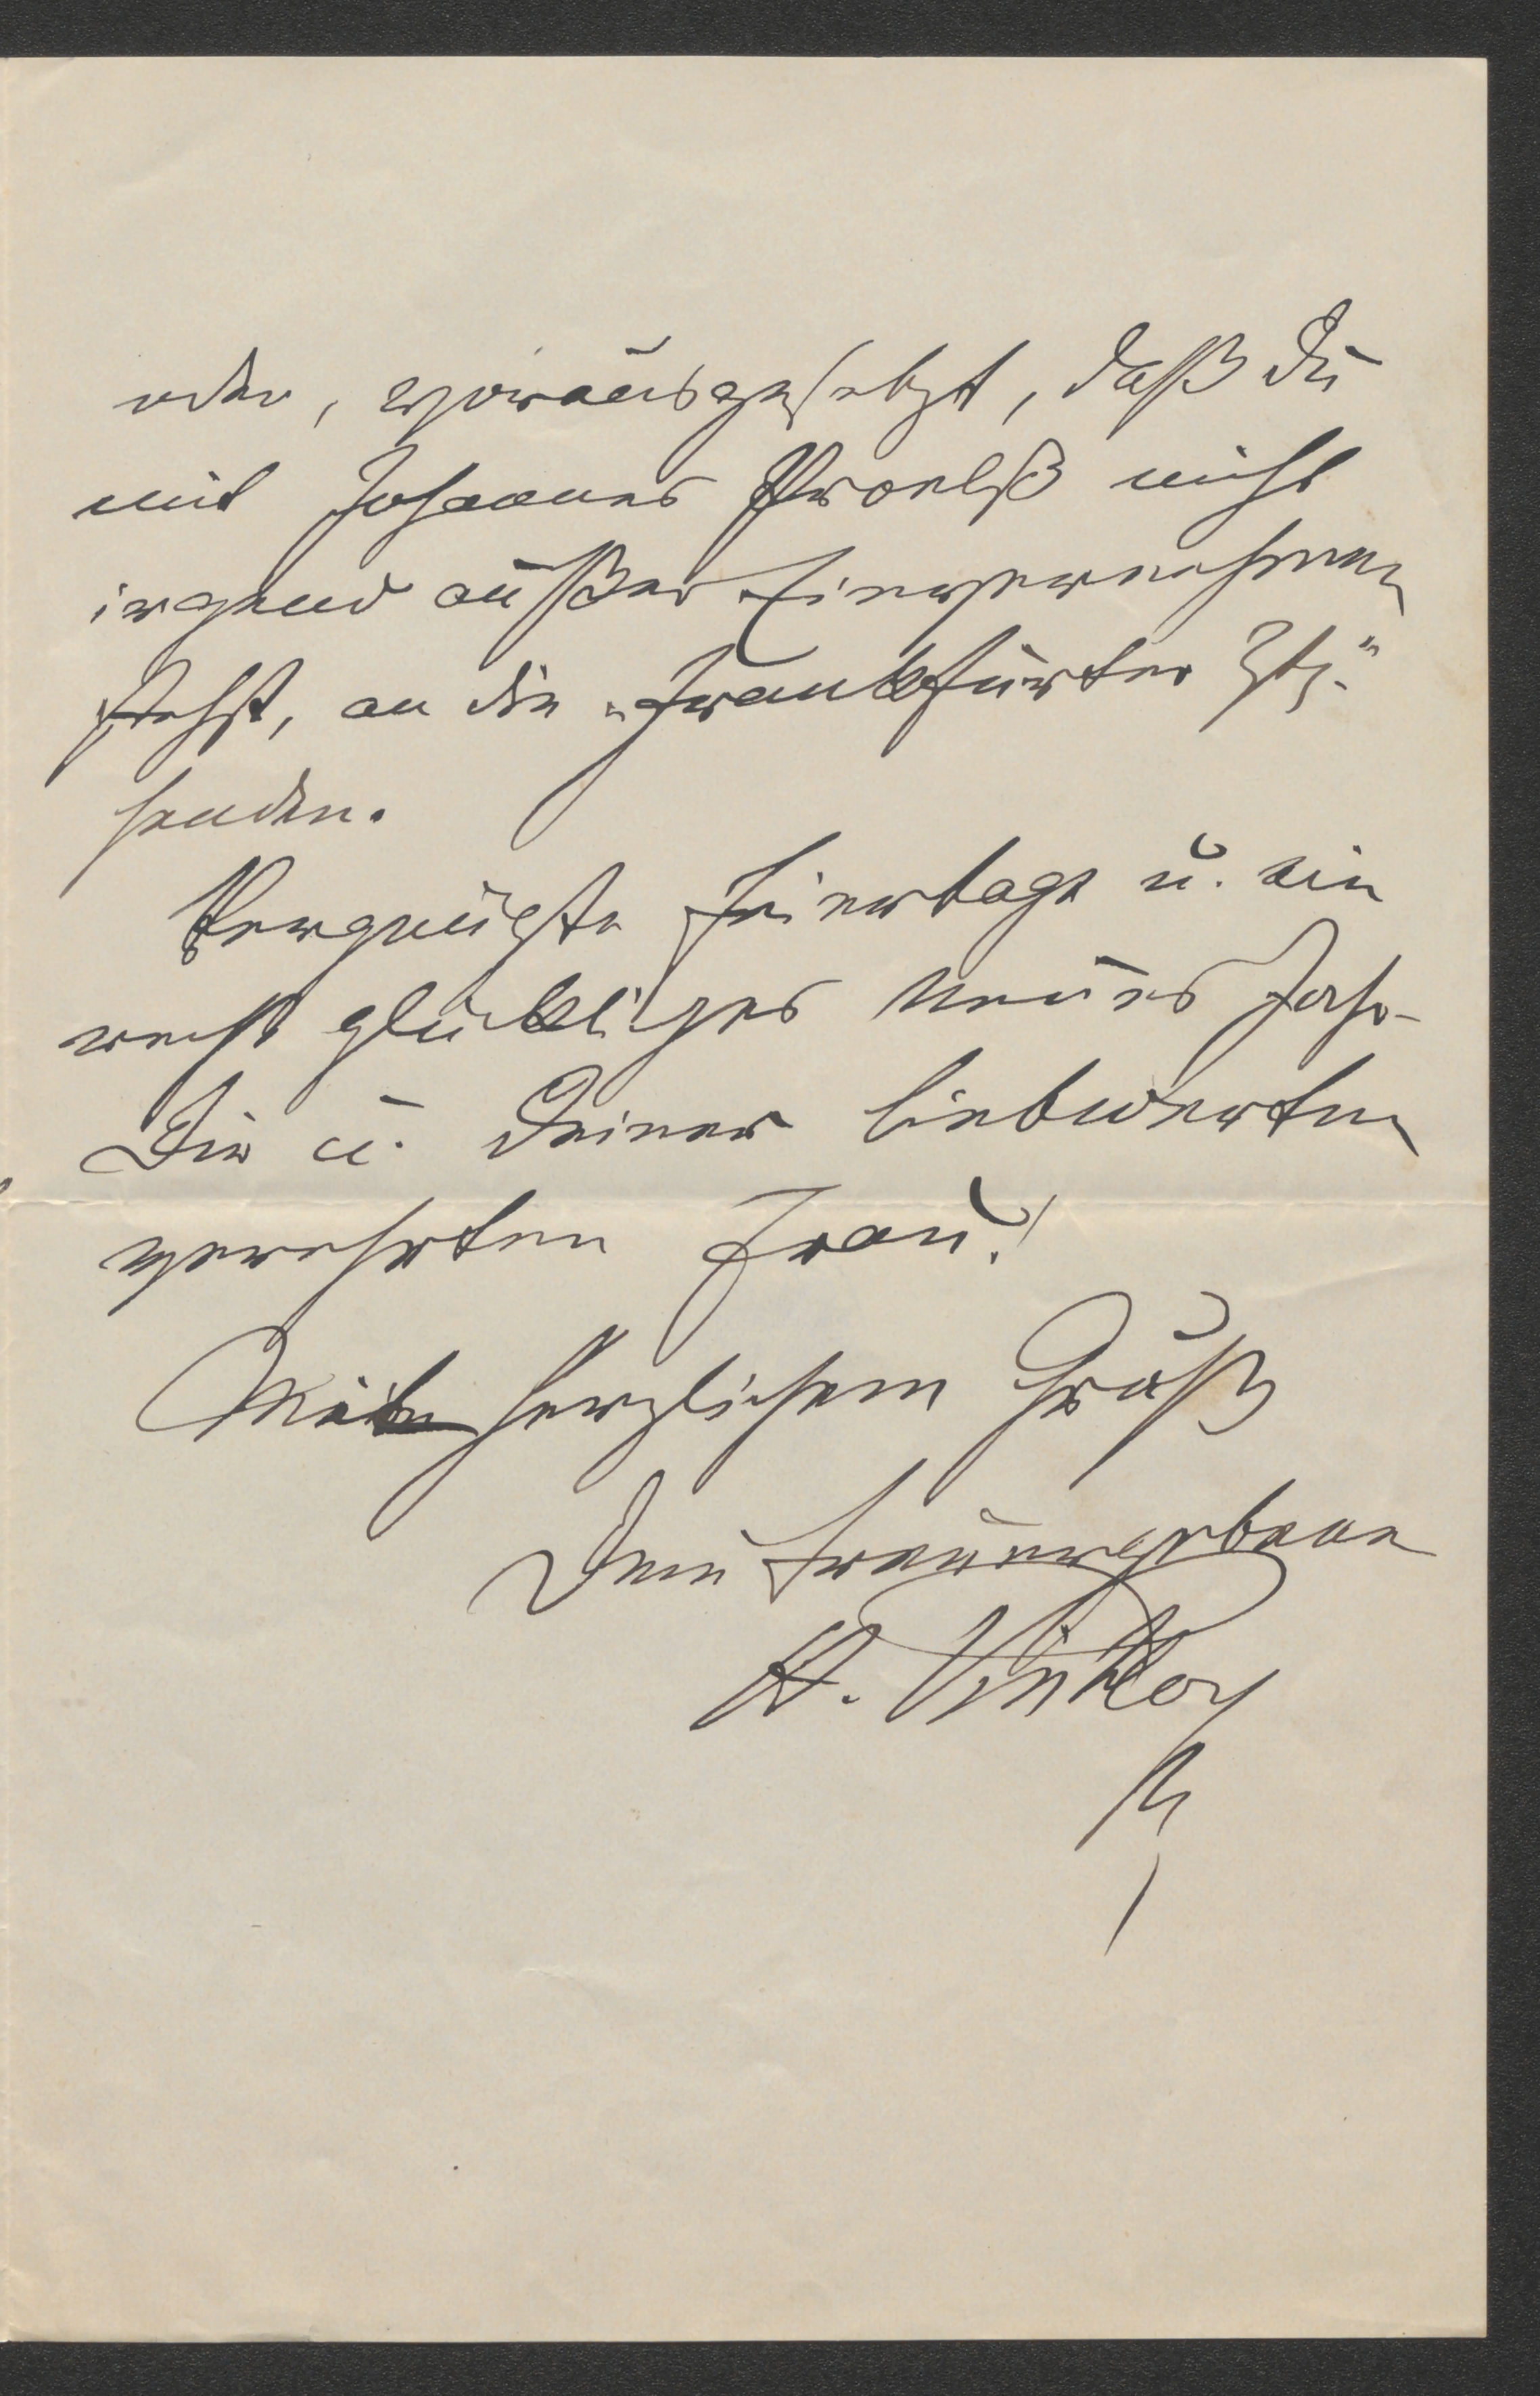 oder, vorausgesetzt, daß Du
mit Johannes Proelß nicht
irgend außer Einvernehmen
stehst, an die „Frankfurter Ztg."
senden.
Vergnügte Feiertage u. ein
recht glückliches neues Jahr
Dir u. Deiner liebwerten
verehrten Frau!
Mit herzlichem Gruß
Dein treuergebener